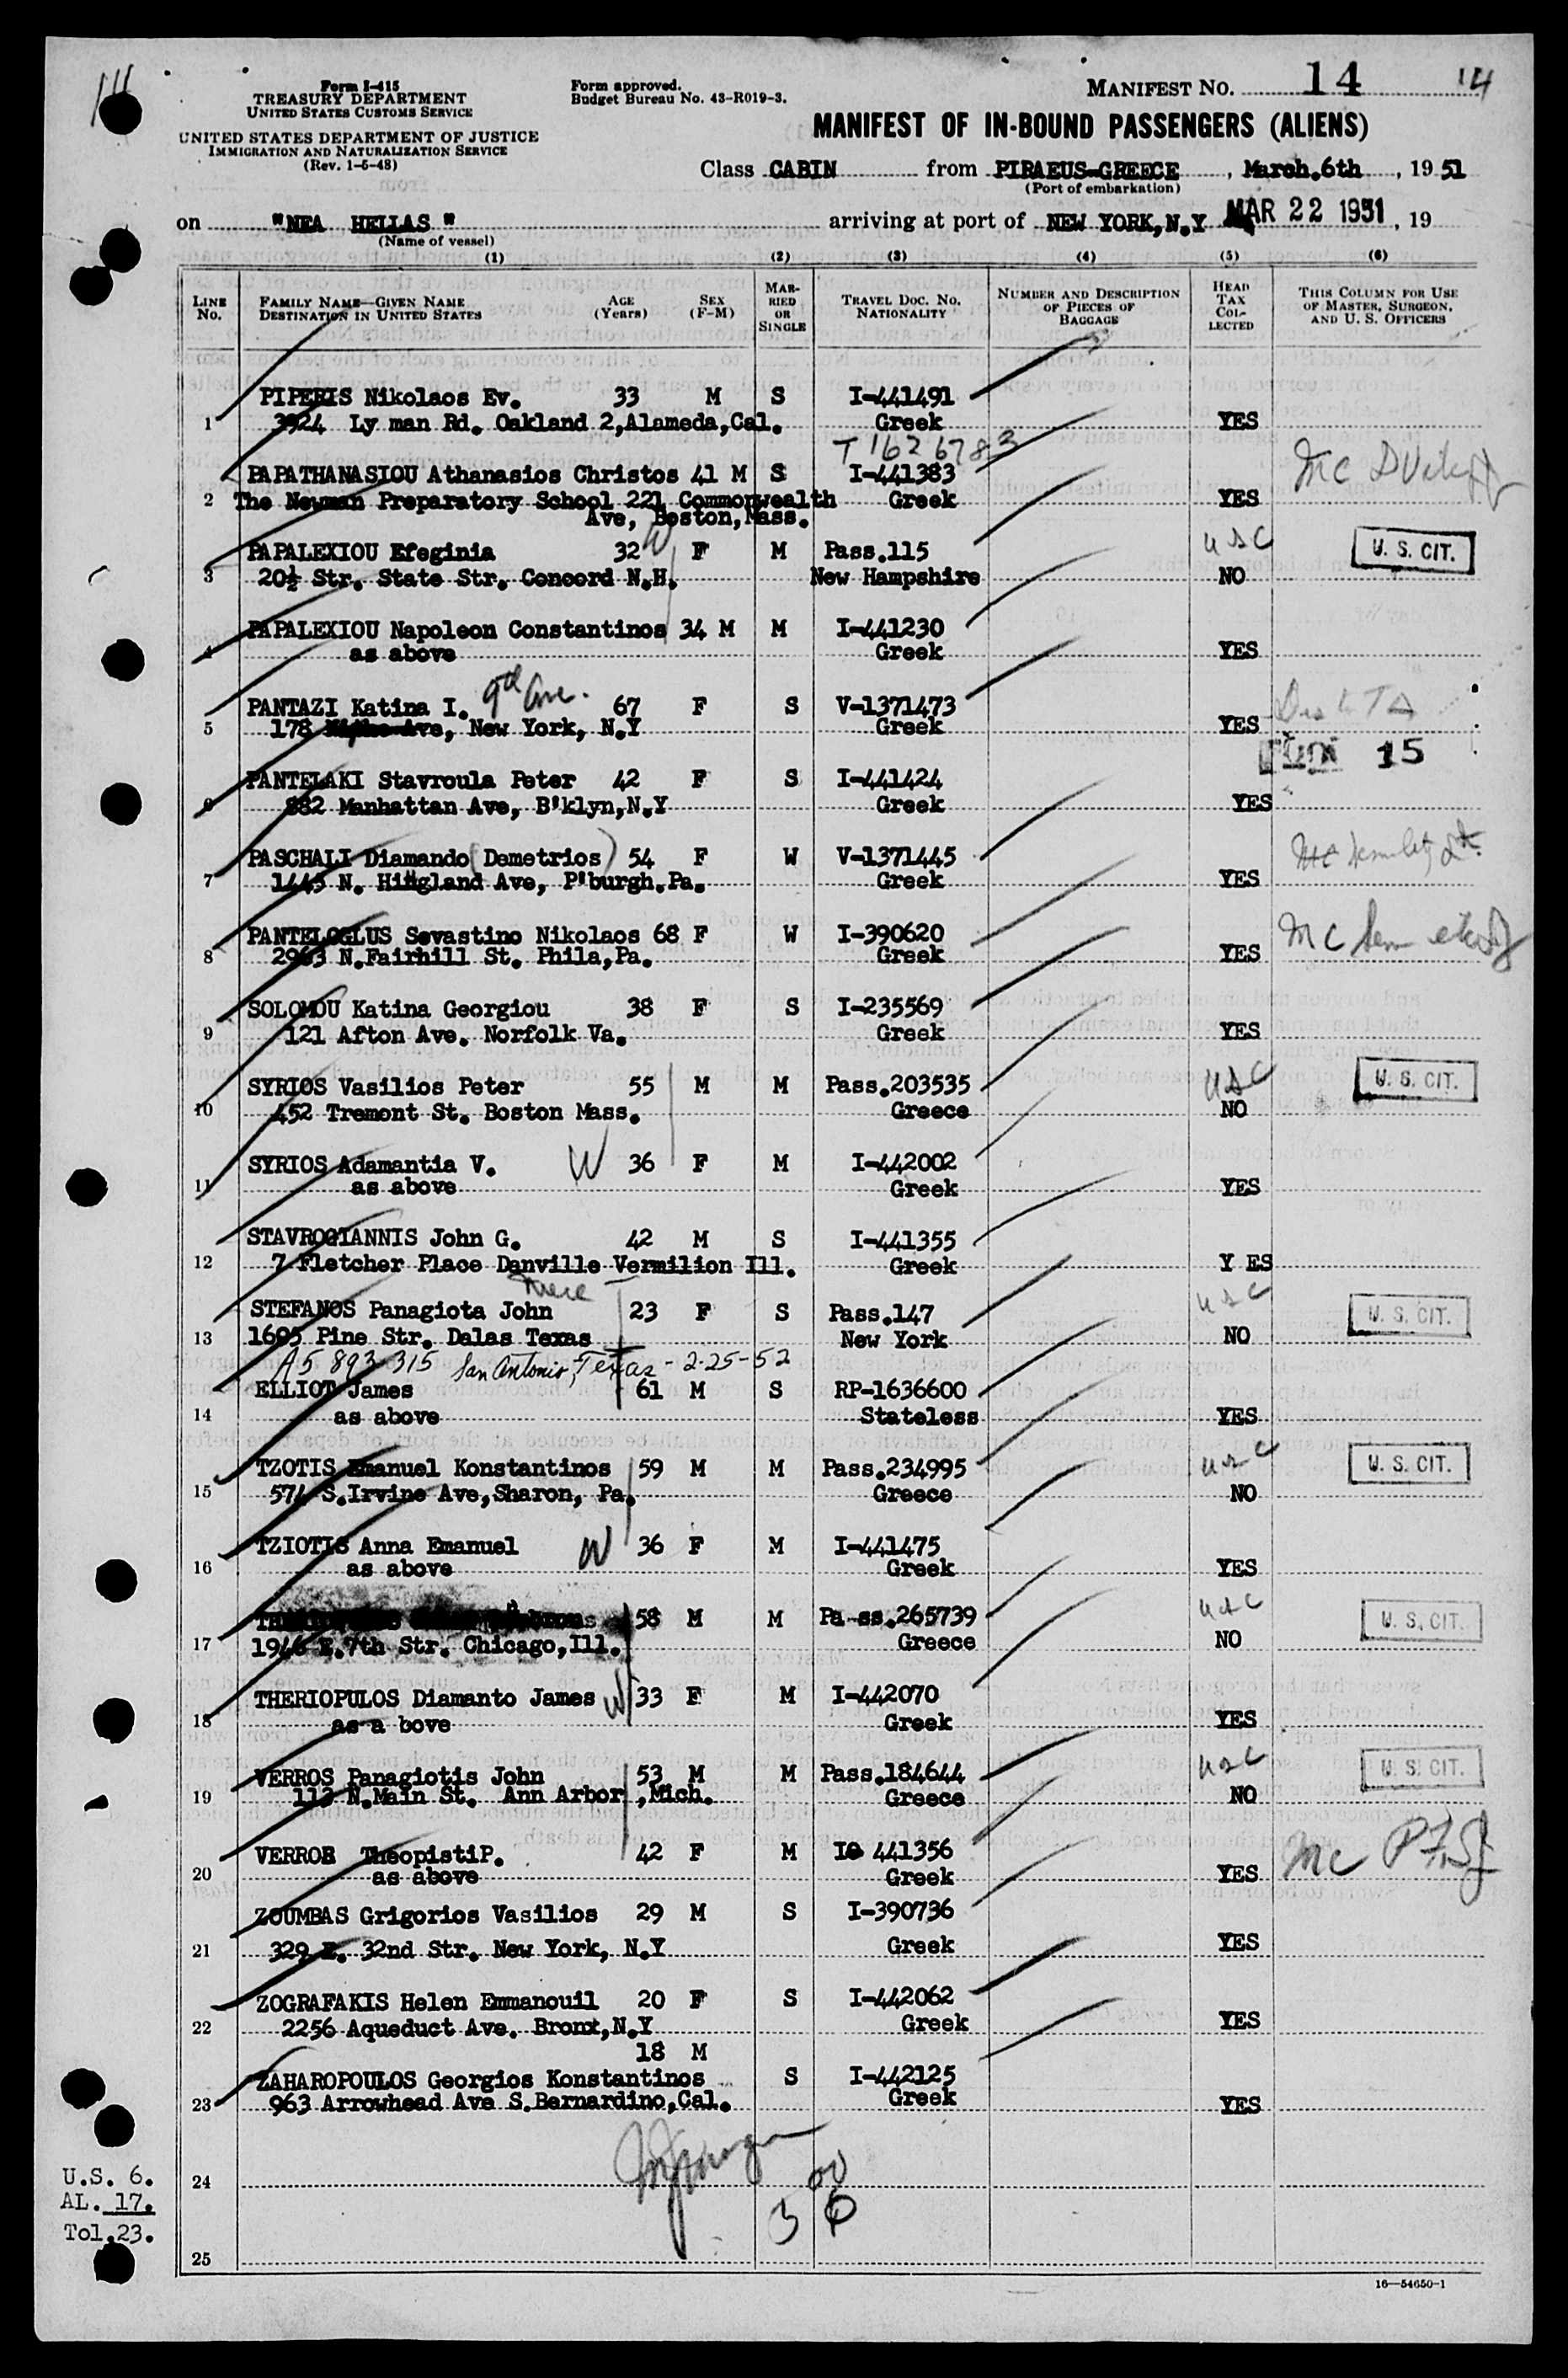 Form I-415
TREASURY DEPARTMENT
UNITED STATES CUSTOMS SERVICE
UNITED STATES DEPARTMENT OF JUSTICE
IMMIGRATION AND NATURALIZATION SERVICE
(Rev. 1-5-48)
Form approved.
Budget Bureau No. 43-R019-3.
MANIFEST NO. 14 14
MANIFEST OF IN-BOUND PASSENGERS (ALIENS)
Class CABIN from PIRAEUS-GREECE, March.6th, 1951
(Port of embarkation)
on "NEA HELLAS" arriving at port of NEW YORK,N.Y MAR 22 1951, 19
(Name of vessel)
(1) (2) (3) (4) (5) (6)
LINE NO. FAMILY NAME—GIVEN NAME DESTINATION IN UNITED STATES AGE (Years) SEX (F-M) MARRIED OR SINGLE TRAVEL DOC. NO. NATIONALITY NUMBER AND DESCRIPTION OF PIECES OF BAGGAGE HEAD TAX COLLECTED THIS COLUMN FOR USE OF MASTER, SURGEON, AND U. S. OFFICERS
PIPERIS Nikolaos Ev. 33 M S I-441491
1 3924 Ly man Rd. Oakland 2,Alameda,Cal. Greek YES
T 1626783
PAPATHANASIOU Athanasios Christos 41 M S I-441383 MC
2 The Newman Preparatory School 221 Commonwealth Greek YES
Ave, Boston,Mass.
PAPALEXIOU Efeginia 32 W F M Pass.115 USC U. S. CIT.
3 20½ Str. State Str. Concord N.H. New Hampshire NO
PAPALEXIOU Napoleon Constantinos 34 M M I-441230
4 as above Greek YES
PANTAZI Katina I. 9d Ave. 67 F S V-1371473
5 178 Ave, New York, N.Y Greek YES
15
PANTELAKI Stavroula Peter 42 F S I-441424
6 882 Manhattan Ave, B'klyn,N.Y Greek YES
PASCHALI Diamando (Demetrios) 54 F W V-1371445
7 1445 N. Hihgland Ave, P'burgh.Pa. Greek YES
PANTELOGLUS Sevastino Nikolaos 68 F W I-390620 MC
8 2963 N.Fairhill St. Phila,Pa. Greek YES
SOLOMOU Katina Georgiou 38 F S I-235569
9 121 Afton Ave. Norfolk Va. Greek YES
SYRIOS Vasilios Peter 55 M M Pass.203535 USC U. S. CIT.
10 452 Tremont St. Boston Mass. Greece NO
SYRIOS Adamantia V. W 36 F M I-442002
11 as above Greek YES
STAVROGIANNIS John G. 42 M S I-441355
12 7 Fletcher Place Danville Vermilion Ill. Greek Y ES
Niece
STEFANOS Panagiota John 23 F S Pass.147 USC U. S. CIT.
13 1605 Pine Str. Dalas Texas New York NO
A5 893 315 San Antonio, Texas - 2-25-52
ELLIOT James 61 M S RP-1636600
14 as above Stateless YES
TZOTIS Emanuel Konstantinos 59 M M Pass.234995 USC U. S. CIT.
15 574 S.Irvine Ave,Sharon, Pa. Greece NO
TZIOTIS Anna Emanuel W 36 F M I-441475
16 as above Greek YES
58 M M Pa-ss.265739 USC U. S. CIT.
17 1946 E.7th Str. Chicago,Ill. Greece NO
THERIOPULOS Diamanto James W 33 F M I-442070
18 as a bove Greek YES
VERROS Panagiotis John 53 M M Pass.184644 USC U. S. CIT.
19 113 N.Main St. Ann Arbor ,Mich. Greece NO
VERROS TheopistiP. 42 F M I 441356 MC
20 as above Greek YES
ZOUMBAS Grigorios Vasilios 29 M S I-390736
21 329 E. 32nd Str. New York, N.Y Greek YES
ZOGRAFAKIS Helen Emmanouil 20 F S I-442062
22 2256 Aqueduct Ave. Bronx,N.Y Greek YES
18 M
ZAHAROPOULOS Georgios Konstantinos S I-442125
23 963 Arrowhead Ave S.Bernardino,Cal. Greek YES
24
25
U.S. 6.
AL. 17.
Tol.23.
16—54650-1